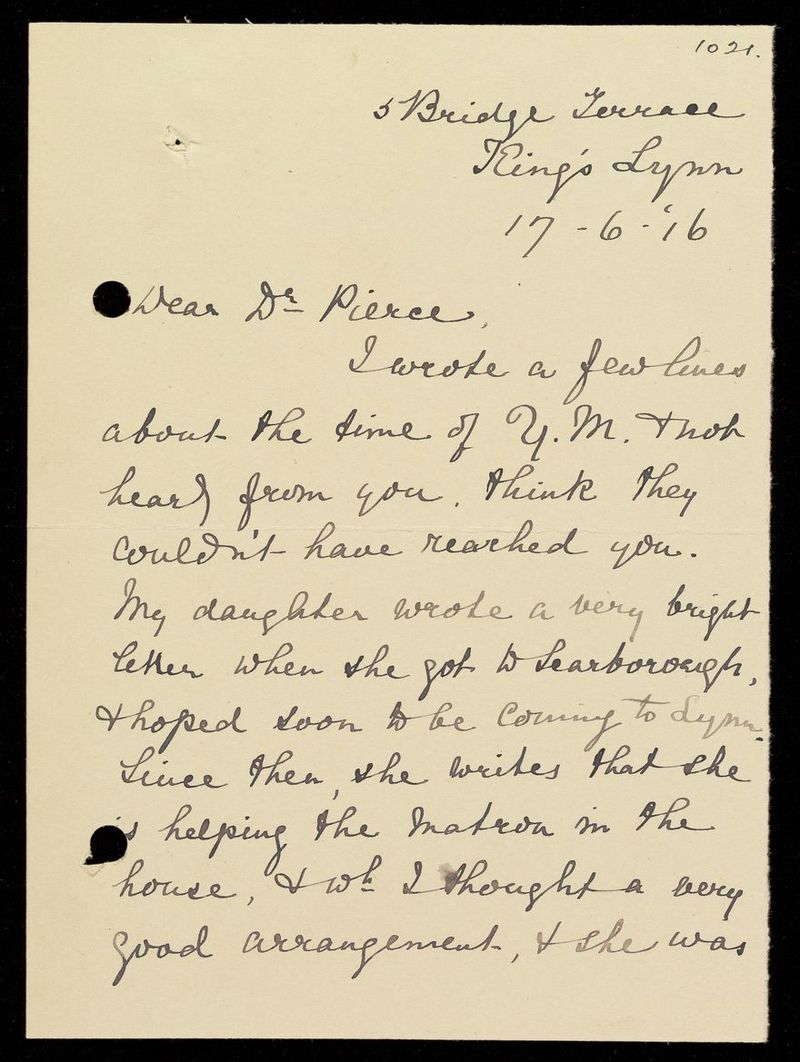 1021.
5 Bridge Terrace
King's Lynn
17-6-'16
Dear Dr Pierce,
I wrote a few lines
about the time of Y.M. & not
heard from you. think they
couldn't have reached you.
My daughter wrote a very bright
letter when she got to Scarborough,
& hoped soon to be coming to Lynn.
Since then, she writes that she
is helping the Matron in the
house, & wh I thought a very
good arrangement, & she was